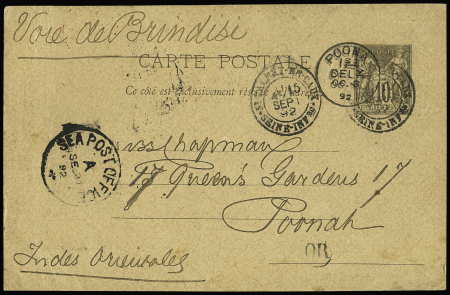 Voie de Brindisi
CARTE POSTALE
Ce côté est exclusivement réservé
POONA
DEL
92
10
SEPT
92
SEINE-INF
SEA POST OFFICE
A
SE
92
Miss Chapman
17 Queen's Gardens 17
Poonah
Indes Orientales
OR